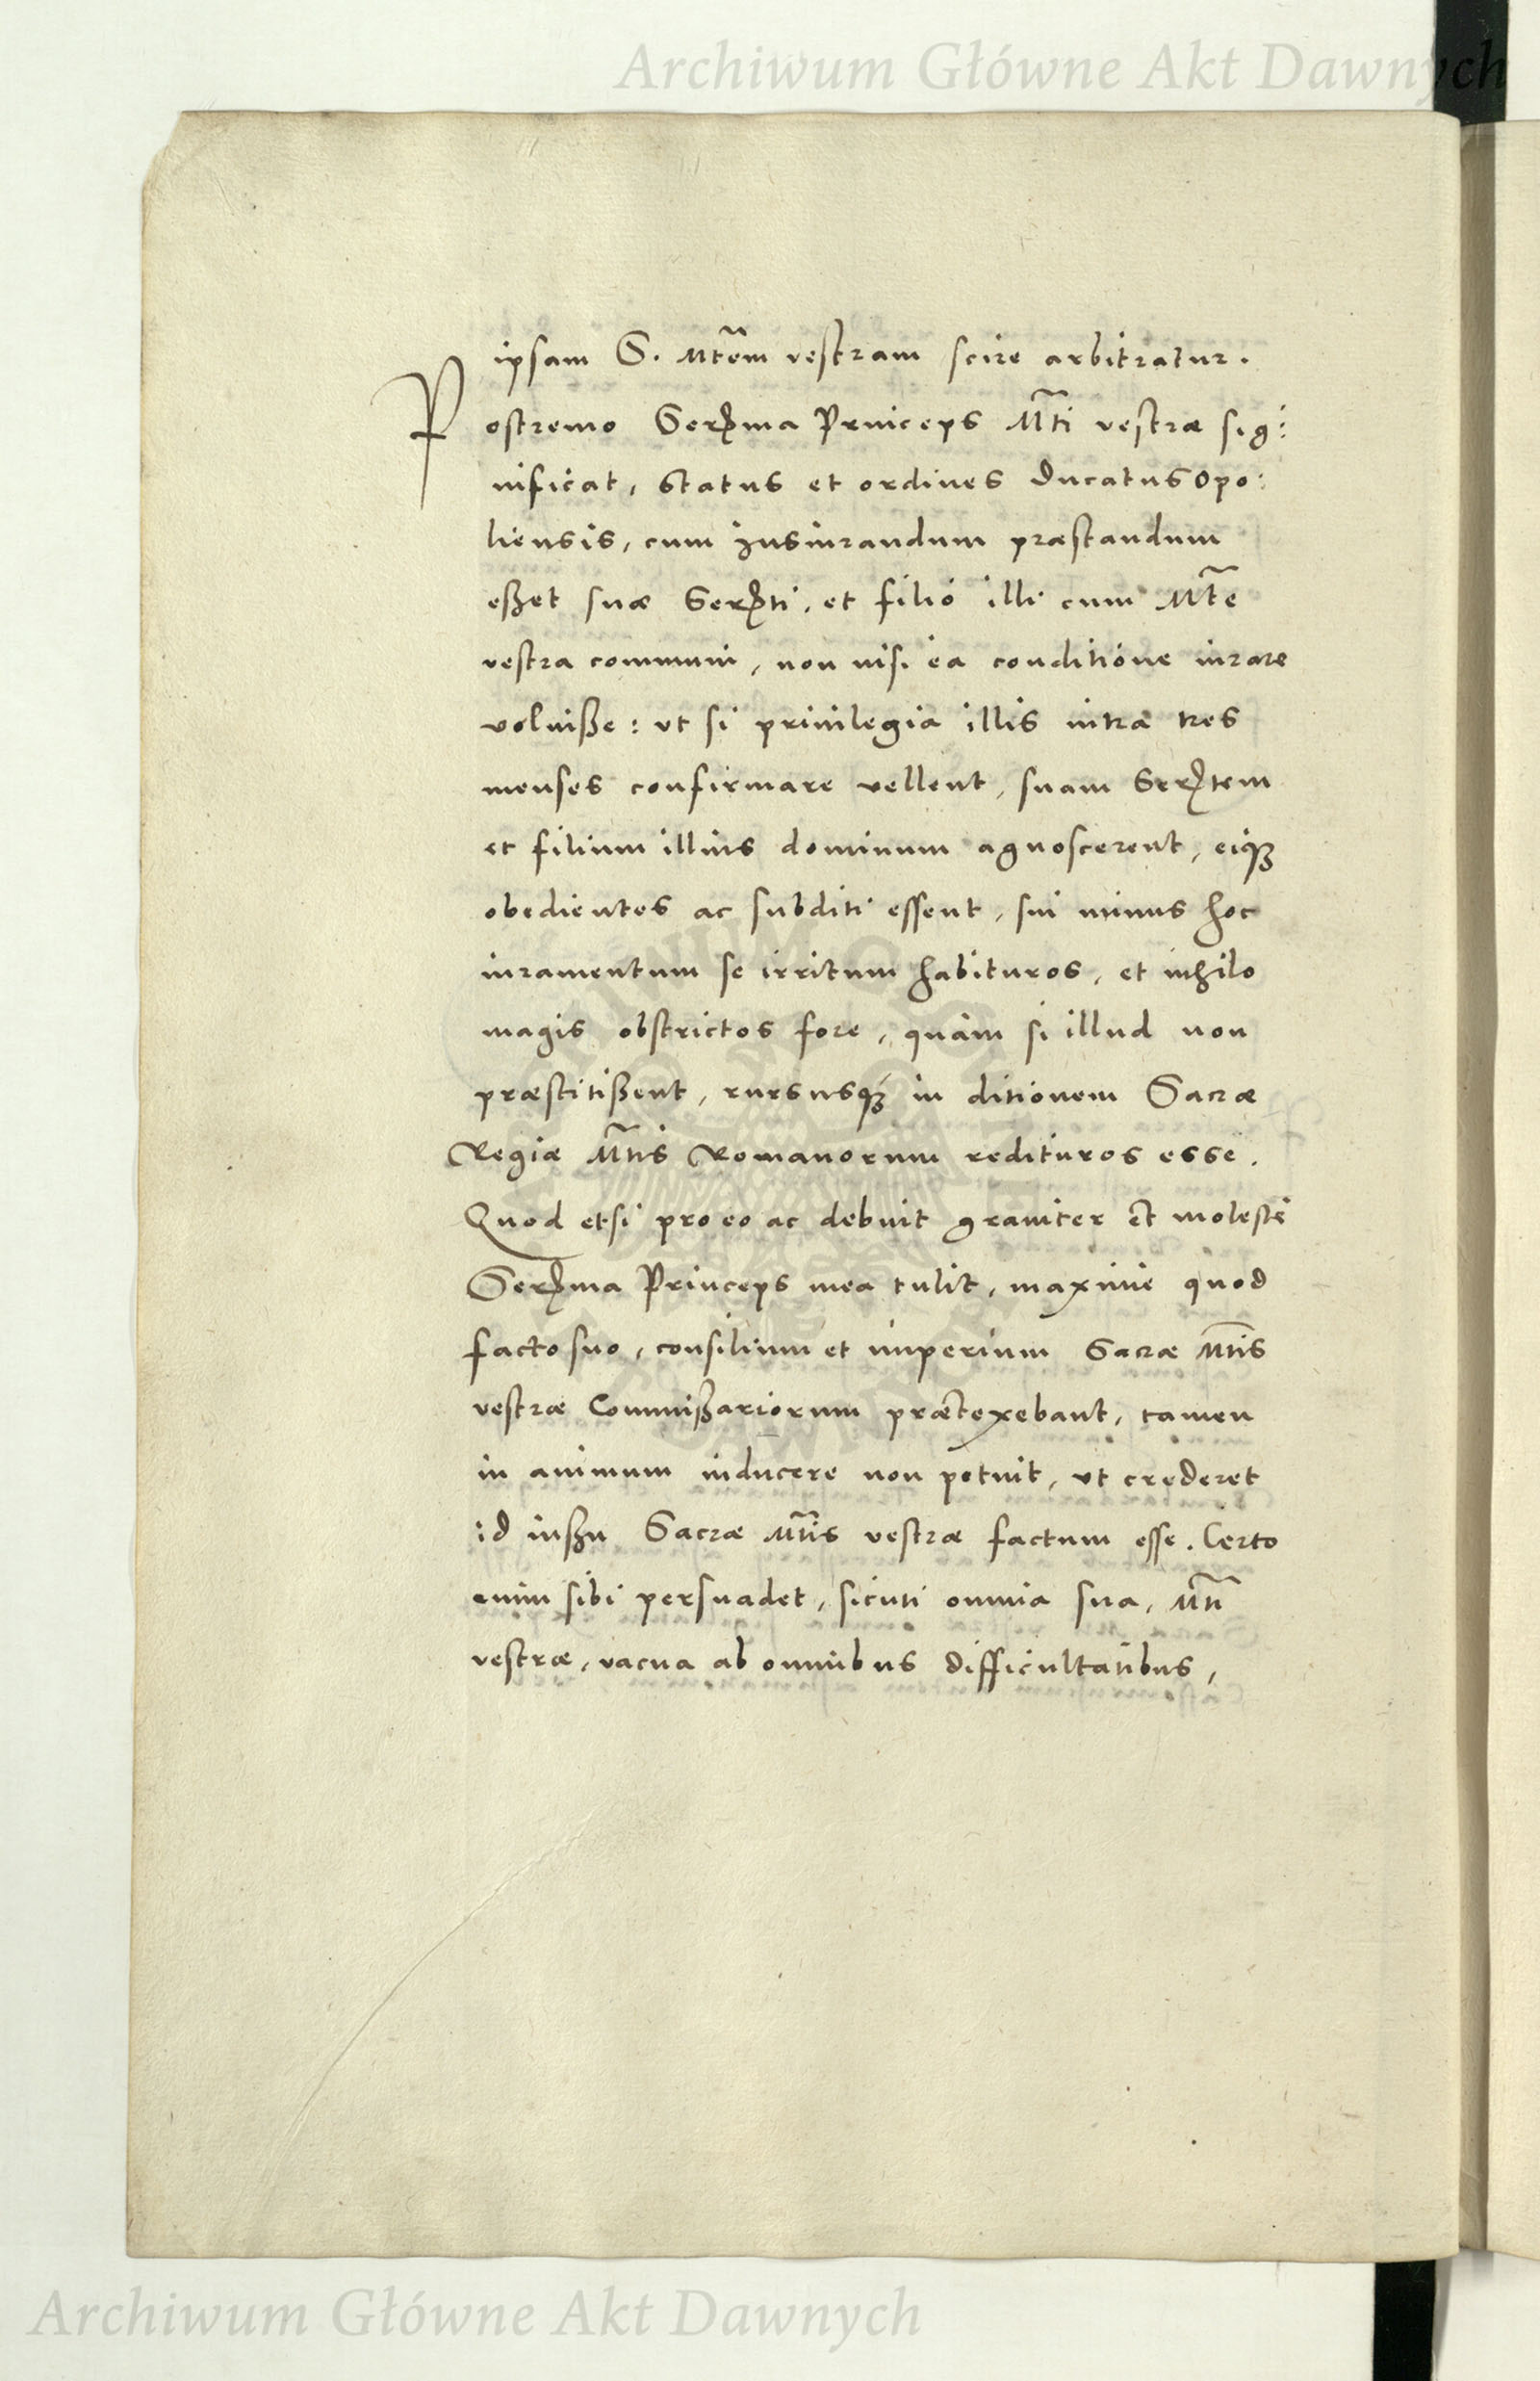 Archiwum Główne Akt Dawnych
ipsam S. Mtem vestram scire arbitratur.
Postremo Serma Princeps Mti vestræ sig:
nificat, status et ordines Ducatus Opo:
liensis, cum iusiurandum præstandum
eßet suæ Serti, et filio illi cum Mte
vestra communi, non nisi ea conditione iurare
voluiße: ut si priuilegia illis intra tres
menses confirmare vellent, suam Sertem
et filium illius dominum agnoscerent, eiq3
obedientes ac subditi essent, sin minus hoc
iuramentum se irritum habituros, et nihilo
magis obstrictos fore, quàm si illud non
præstitißent, rursusq3 in ditionem Sacræ
Regiæ Mtis Romanorum redituros esse.
Quod etsi pro eo ac debuit grauiter et molestè
Serma Princeps mea tulit, maxime quod
facto suo, consilium et imperium Sacræ Mtis
vestræ Commißariorum prætexebant, tamen
in animum inducere non potuit, ut crederet
id inßu Sacræ Mtis vestræ factum esse. Certo
enim sibi persuadet, sicuti omnia sua, Mti
vestræ, vacua ab omnibus difficultatibus,
Archiwum Główne Akt Dawnych